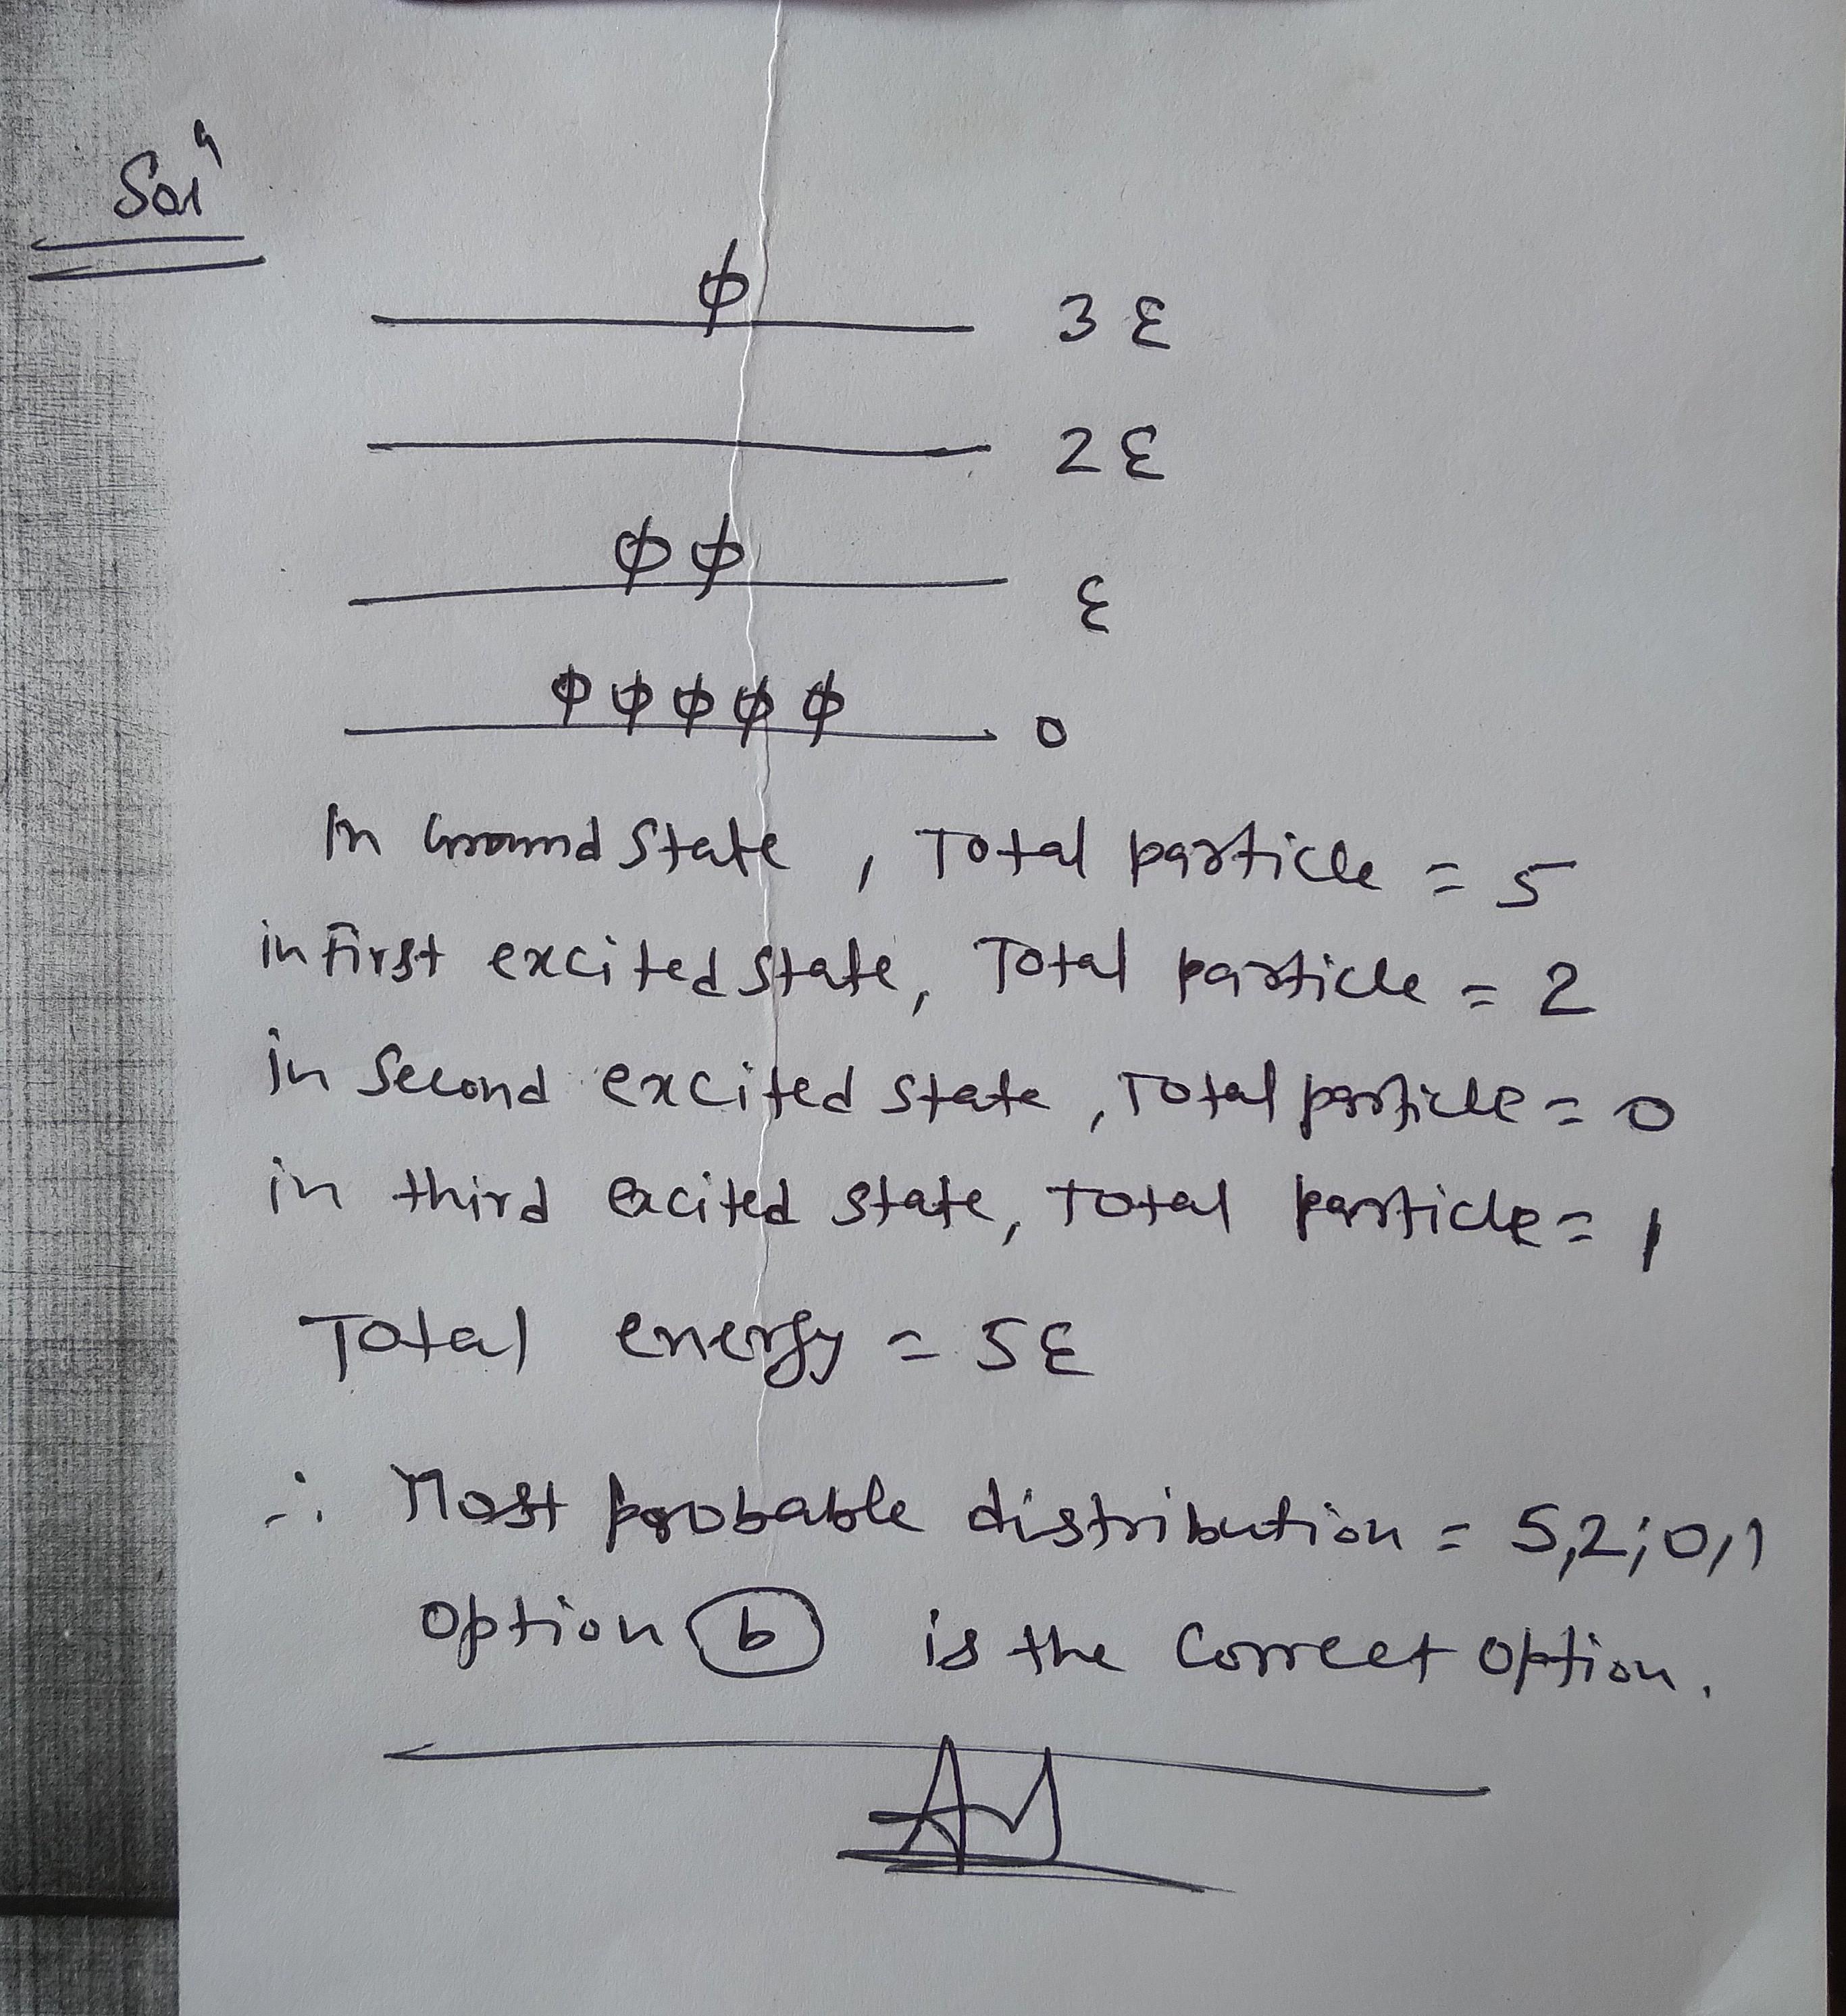 Solⁿ
ϕ 3 ε
2 ε
ϕ ϕ ε
ϕ ϕ ϕ ϕ ϕ 0
In Ground State , Total particle = 5
in First excited State, Total particle = 2
in Second excited state , Total particle = 0
in third excited state, Total particle = 1
Total energy = 5ε
∴ Most probable distribution = 5,2;0,1
option (b) is the Correct option.